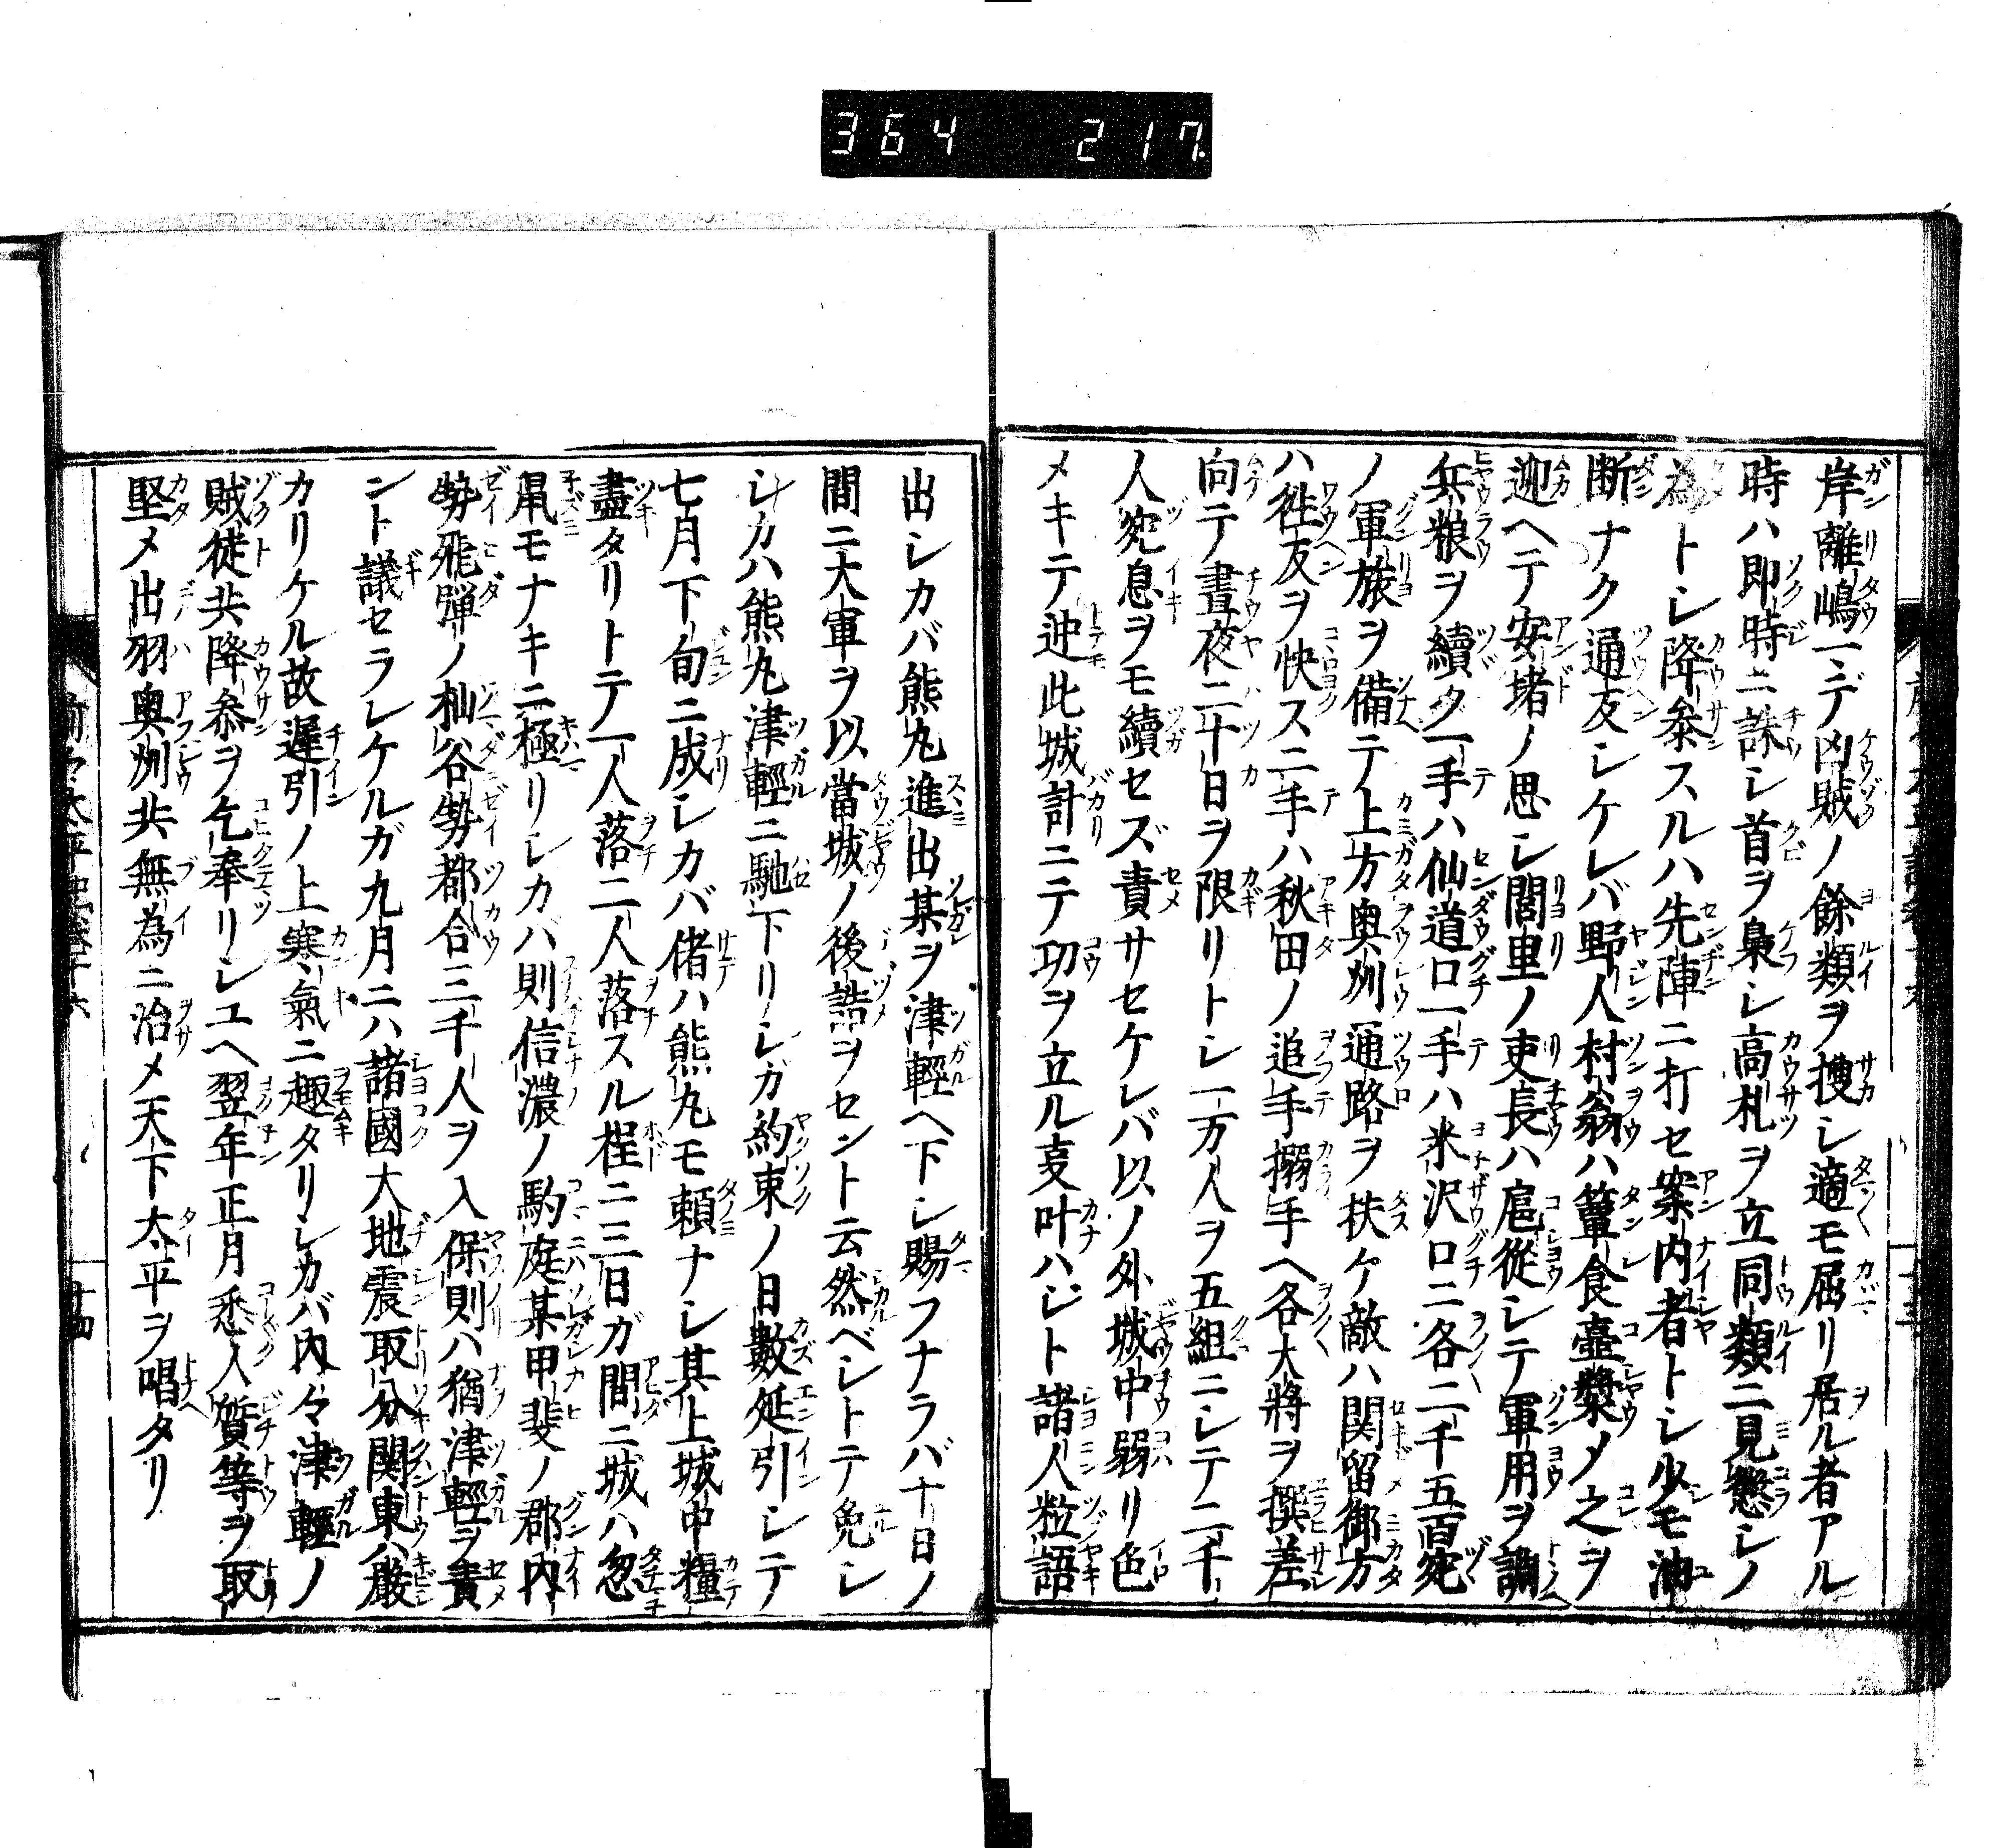 364 217
岸離嶋マデ凶賊ノ餘類ヲ捜シ適モ屈リ居ル者アル
時ハ即時ニ誅シ首ヲ梟シ高札ヲ立同類ニ見懲シノ
為トシ降参スルハ先陣ニ打セ案内者トシ少モ油
断ナク通友シケレバ野人村翁ハ簞食壷漿メ之ヲ
迎ヘテ安堵ノ思シ閭里ノ吏長ハ扈從シテ軍用ヲ調
兵粮ヲ續ク一手ハ仙道口一手ハ米沢口ニ各二千五百宛
ノ軍旅ヲ備テ上方奥州通路ヲ扶ケ敵ハ関留御方
ハ徃友ヲ快ス二手ハ秋田ノ追手搦手ヘ各大將ヲ撰差
向テ晝夜二十日ヲ限リトシ一万人ヲ五組ニシテ二千
人宛息ヲモ續セズ責サセケレバ以ノ外城中弱リ色
メキテ迚此城計ニテ功ヲ立ル叓叶ハジト諸人粒語
出シカバ熊丸進出某ヲ津輕ヘ下シ賜フナラバ十日ノ
間ニ大軍ヲ以當城ノ後詰ヲセント云然ベシトテ免シ
シカハ熊丸津輕ニ馳下リシガ約束ノ日數延引シテ
七月下旬ニ成シカバ偖ハ熊丸モ頼ナシ其上城中糧
盡タリトテ一人落二人落スル程ニ三日ガ間ニ城ハ忽
鼡モナキニ極リシカバ則信濃ノ駒庭某甲斐ノ郡内
勢飛彈ノ杣谷勢都合三千人ヲ入保則ハ猶津輕ヲ責
ント議セラレケルガ九月ニハ諸國大地震取分関東ハ嚴
カリケル故遲引ノ上寒氣ニ趣タリシカバ内々津輕ノ
賊徒共降叅ヲ乞奉リシユヘ翌年正月悉人質等ヲ取
堅メ出羽奥州共無為ニ治メ天下太平ヲ唱タリ